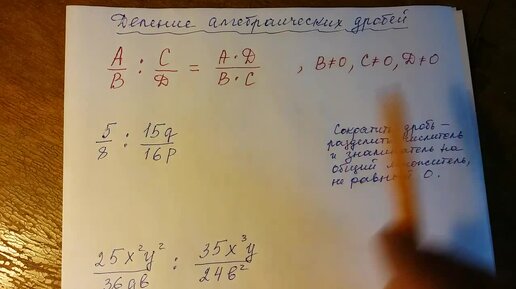 Деление алгебраических дробей
A/B : C/D = A·D/B·C , B≠0, C≠0, D≠0
5/8 : 15q/16p
Сократить дробь –
разделить числитель
и знаменатель на
общий множитель,
не равный 0.
25x²y²/36ab : 35x³y/24b²